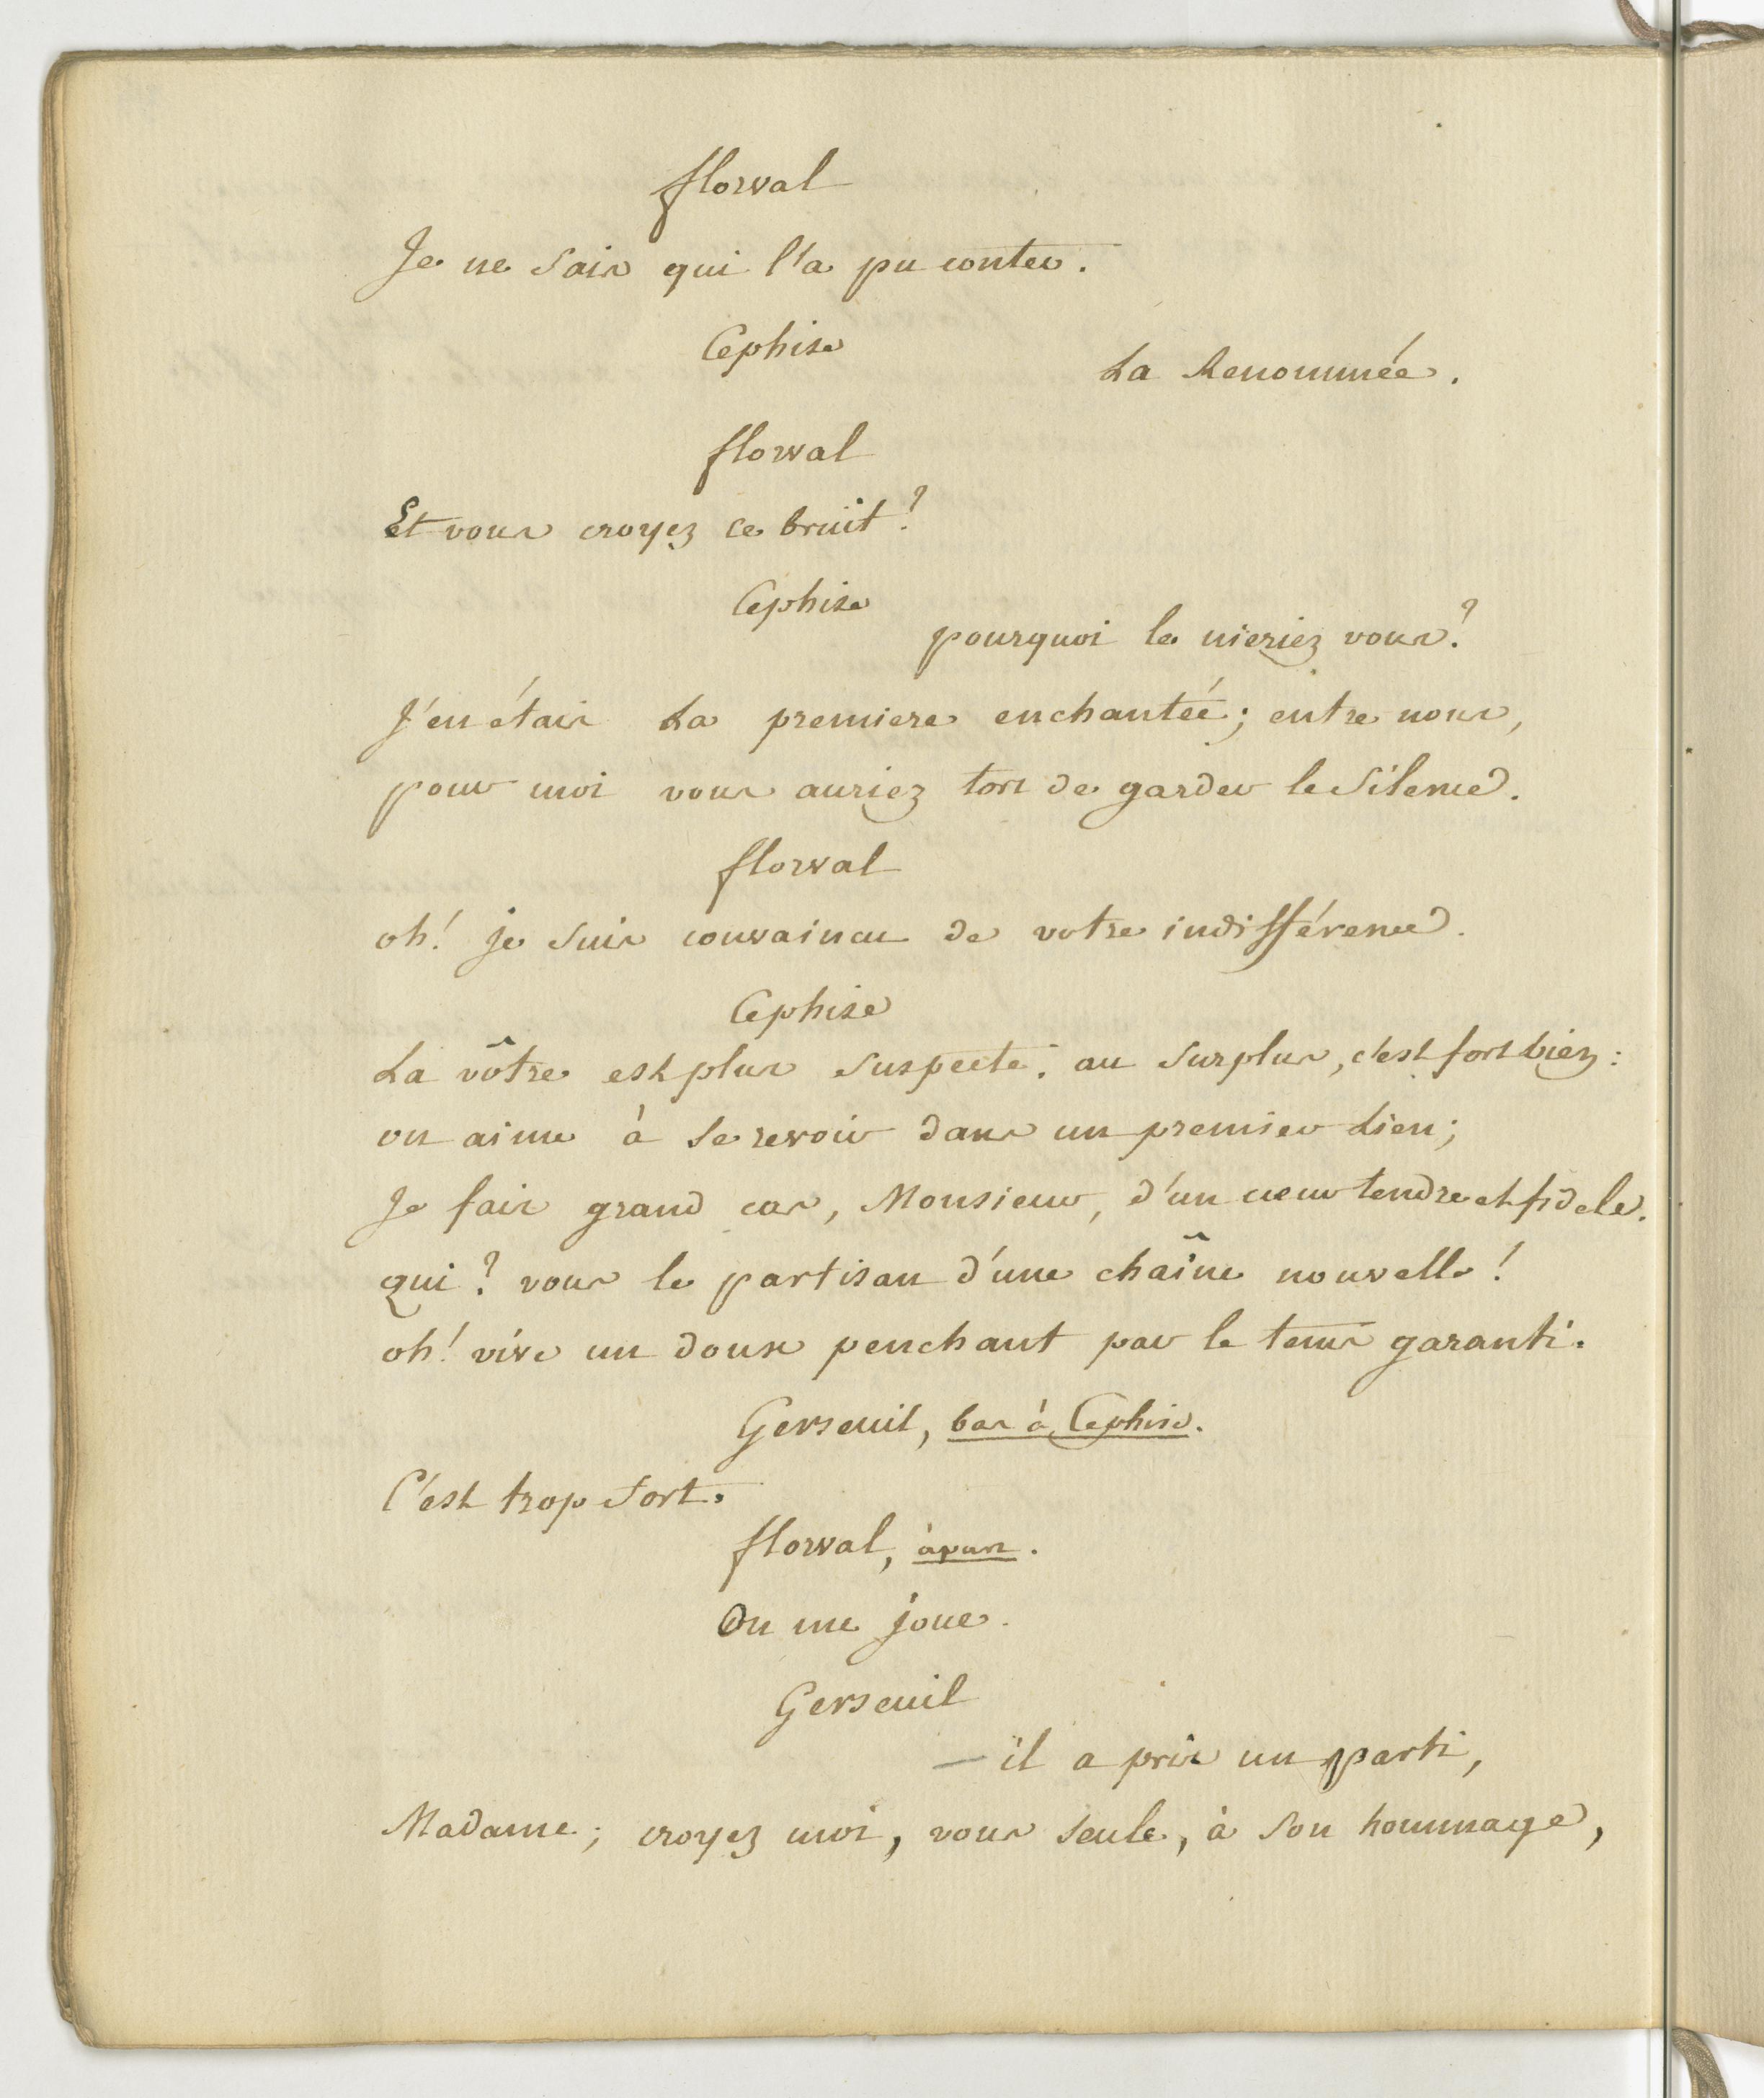 florval
Je ne sais qui l'a pu conter.
Cephise
La Renommée.
florval
Et vous croyez ce bruit?
Cephise
pourquoi le nieriez vous?
J'en étais La premiere enchantée; entre nous,
pour moi vous auriez tort de garder le Silence.
florval
oh! je suis convaincu de votre indifférence.
Cephise
La vôtre est plus suspecte. au surplus, c'est fort bien:
on aime à se revoir dans un premier Lien;
Je fais grand cas, Monsieur, d'un cœur tendre et fidele.
qui? vous le partisan d'une chaîne nouvelle!
oh! vive un doux penchant par le tems garanti.
Gerseuil, bas à Cephise.
C'est trop fort.
florval, àpart.
On me joue.
Gerseuil
— il a pris un parti,
Madame; croyez moi, vous seule, à son hommage,